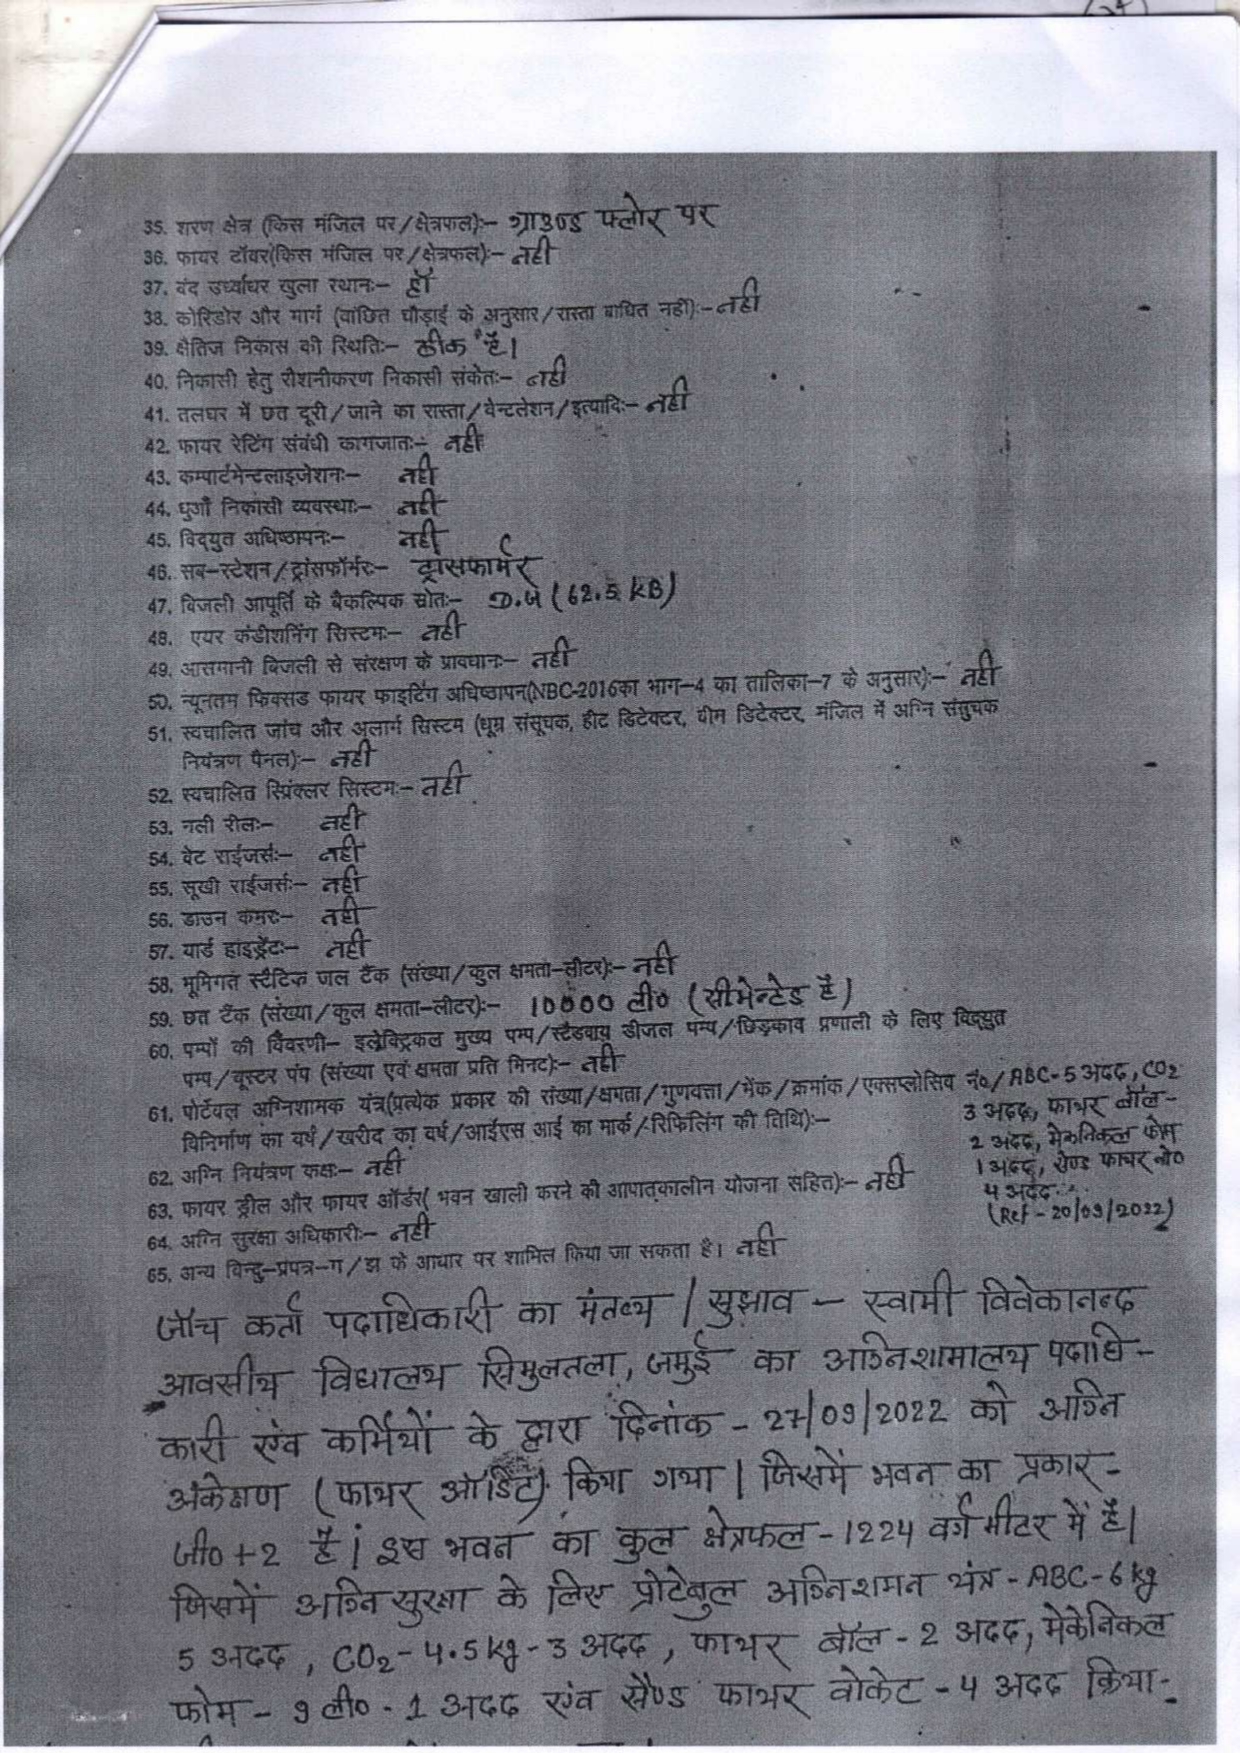 35. शरण क्षेत्र (किस मंजिल पर/क्षेत्रफल):– ग्राउण्ड फ्लोर पर
36. फायर टॉवर(किस मंजिल पर/क्षेत्रफल):– नही
37. बंद उर्ध्वाधर खुला स्थानः– हाँ
38. कोरिडोर और मार्ग (वांछित चौड़ाई के अनुसार/रास्ता बाधित नहीं):– नही
39. क्षैतिज निकास की स्थितिः– ठीक है।
40. निकासी हेतु रौशनीकरण निकासी संकेतः– नही
41. तलघर में छत दूरी/जाने का रास्ता/वेन्टलेशन/इत्यादिः– नही
42. फायर रेटिंग संबंधी कागजातः– नही
43. कम्पार्टमेन्टलाइजेशनः– नही
44. धुआँ निकासी व्यवस्थाः– नही
45. विद्युत अधिष्ठापनः– नही
46. सब–स्टेशन/ट्रांसफॉर्मरः– ट्रांसफार्मर
47. बिजली आपूर्ति के वैकल्पिक स्रोतः– D.G (62.5 KB)
48. एयर कंडीशनिंग सिस्टमः– नही
49. आसमानी बिजली से संरक्षण के प्रावधानः– नही
50. न्यूनतम फिक्सड फायर फाइटिंग अधिष्ठापन(NBC-2016का भाग–4 का तालिका–7 के अनुसार):– नही
51. स्वचालित जांच और अलार्म सिस्टम (धूम्र संसूचक, हीट डिटेक्टर, बीम डिटेक्टर, मंजिल में अग्नि संसुचक
नियंत्रण पैनल):– नही
52. स्वचालित स्प्रिंक्लर सिस्टमः– नही
53. नली रीलः– नही
54. वेट राईजर्सः– नही
55. सूखी राईजर्सः– नही
56. डाउन कमरः– नही
57. यार्ड हाइड्रेंटः– नही
58. भूमिगत स्टैटिक जल टैंक (संख्या/कुल क्षमता–लीटर):– नही
59. छत टैंक (संख्या/कुल क्षमता–लीटर):– 10000 ली० (सीमेन्टेड है)
60. पम्पों की विवरणी– इलेक्ट्रिकल मुख्य पम्प/स्टैंडबाय डीजल पम्प/छिड़काव प्रणाली के लिए विद्युत
पम्प/बूस्टर पंप (संख्या एवं क्षमता प्रति मिनट):– नही
61. पोर्टेबल अग्निशामक यंत्र(प्रत्येक प्रकार की संख्या/क्षमता/गुणवत्ता/मेक/क्रमांक/एक्सप्लोसिव नं०/ ABC-5 अदद, CO2
विनिर्माण का वर्ष/खरीद का वर्ष/आईएस आई का मार्क/रिफिलिंग की तिथि):– 3 अदद, फायर बॉल-
2 अदद, मेकेनिकल फोम
1 अदद, सेण्ड फायर वो०
4 अदद
(Ref - 20/09/2022)
62. अग्नि नियंत्रण कक्षः– नही
63. फायर ड्रील और फायर ऑर्डर( भवन खाली करने की आपातकालीन योजना सहित):– नही
64. अग्नि सुरक्षा अधिकारीः– नही
65. अन्य बिन्दु–प्रपत्र–ग/झ के आधार पर शामिल किया जा सकता है। नही
जाँच कर्ता पदाधिकारी का मंतव्य / सुझाव – स्वामी विवेकानन्द
आवसीय विधालय सिमुलतला, जमुई का अग्निशामालय पदाधि-
कारी एंव कर्मियों के द्वारा दिनांक - 27/09/2022 को अग्नि
अंकेक्षण (फायर ऑडिट) किया गया | जिसमें भवन का प्रकार-
जी०+2 है। इस भवन का कुल क्षेत्रफल - 1224 वर्ग मीटर में है।
जिसमें अग्नि सुरक्षा के लिए प्रोटेबुल अग्निशमन यंत्र - ABC - 6 kg
5 अदद, CO2 - 4.5 kg - 3 अदद, फायर बॉल - 2 अदद, मेकेनिकल
फोम - 9 ली० - 1 अदद एंव सैण्ड फायर वोकेट - 4 अदद क्रिया-